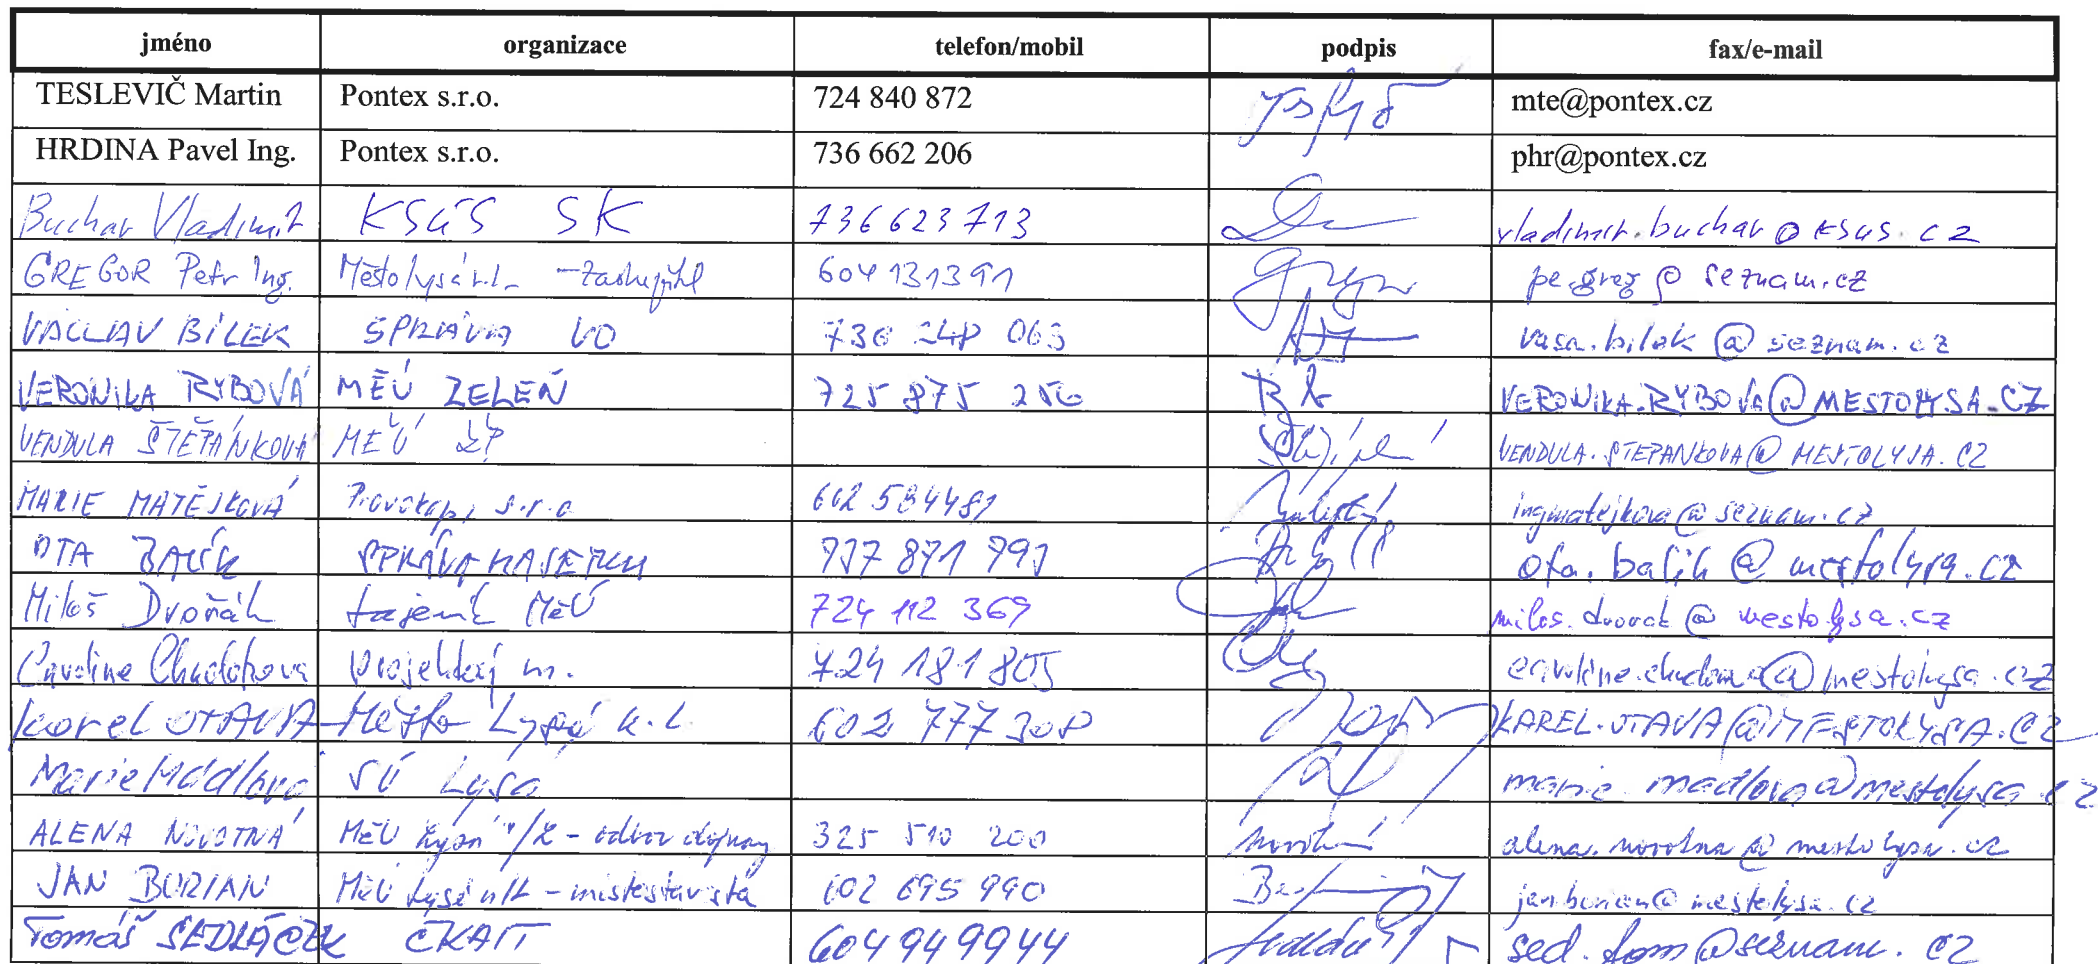 jméno organizace telefon/mobil podpis fax/e-mail
TESLEVIČ Martin Pontex s.r.o. 724 840 872 mte@pontex.cz
HRDINA Pavel Ing. Pontex s.r.o. 736 662 206 phr@pontex.cz
Buchar Vladimír KSÚS SK 736 623 713 vladimir.buchar@ksus.cz
GREGOR Petr Ing. Město Lysá n.L. 604 131391 pe.greg@seznam.cz
VÁCLAV BÍLEK SPRÁVA VO 736 248 063 vasa.bilek@seznam.cz
VERONIKA RYBOVÁ MĚÚ ZELEŇ 725 875 256 VERONIKA.RYBOVA@MESTOLYSA.CZ
VENDULA ŠTĚPÁNKOVÁ MĚÚ VENDULA.STEPANKOVA@MESTOLYSA.CZ
MARIE MATĚJKOVÁ s.r.o 602 584481 ingmatejkova@seznam.cz
OTA BALÍK SPRÁVA MAJETKU 737 871 791 ota.balik@mestolysa.cz
Miloš Dvořák tajemník MěÚ 724 112 369 milos.dvorak@mestolysa.cz
Caroline Chudobova projektový m. 724 181 805 @mestolysa.cz
Karel OTAVA Město Lysá n.L. 602 777 308 KAREL.OTAVA@MESTOLYSA.CZ
Marie Mádlová SÚ Lysa marie.madlova@mestolysa.cz
ALENA NOVOTNÁ MěÚ Lysá n/L - odbor dopravy 325 510 200 novotná alena.novotna@mestolysa.cz
JAN BURIAN MěÚ Lysá n/L - místostarosta 602 695 990 jan.burian@mestolysa.cz
Tomáš SEDLÁČEK ČKAIT 604 949944 sed.tom@seznam.cz